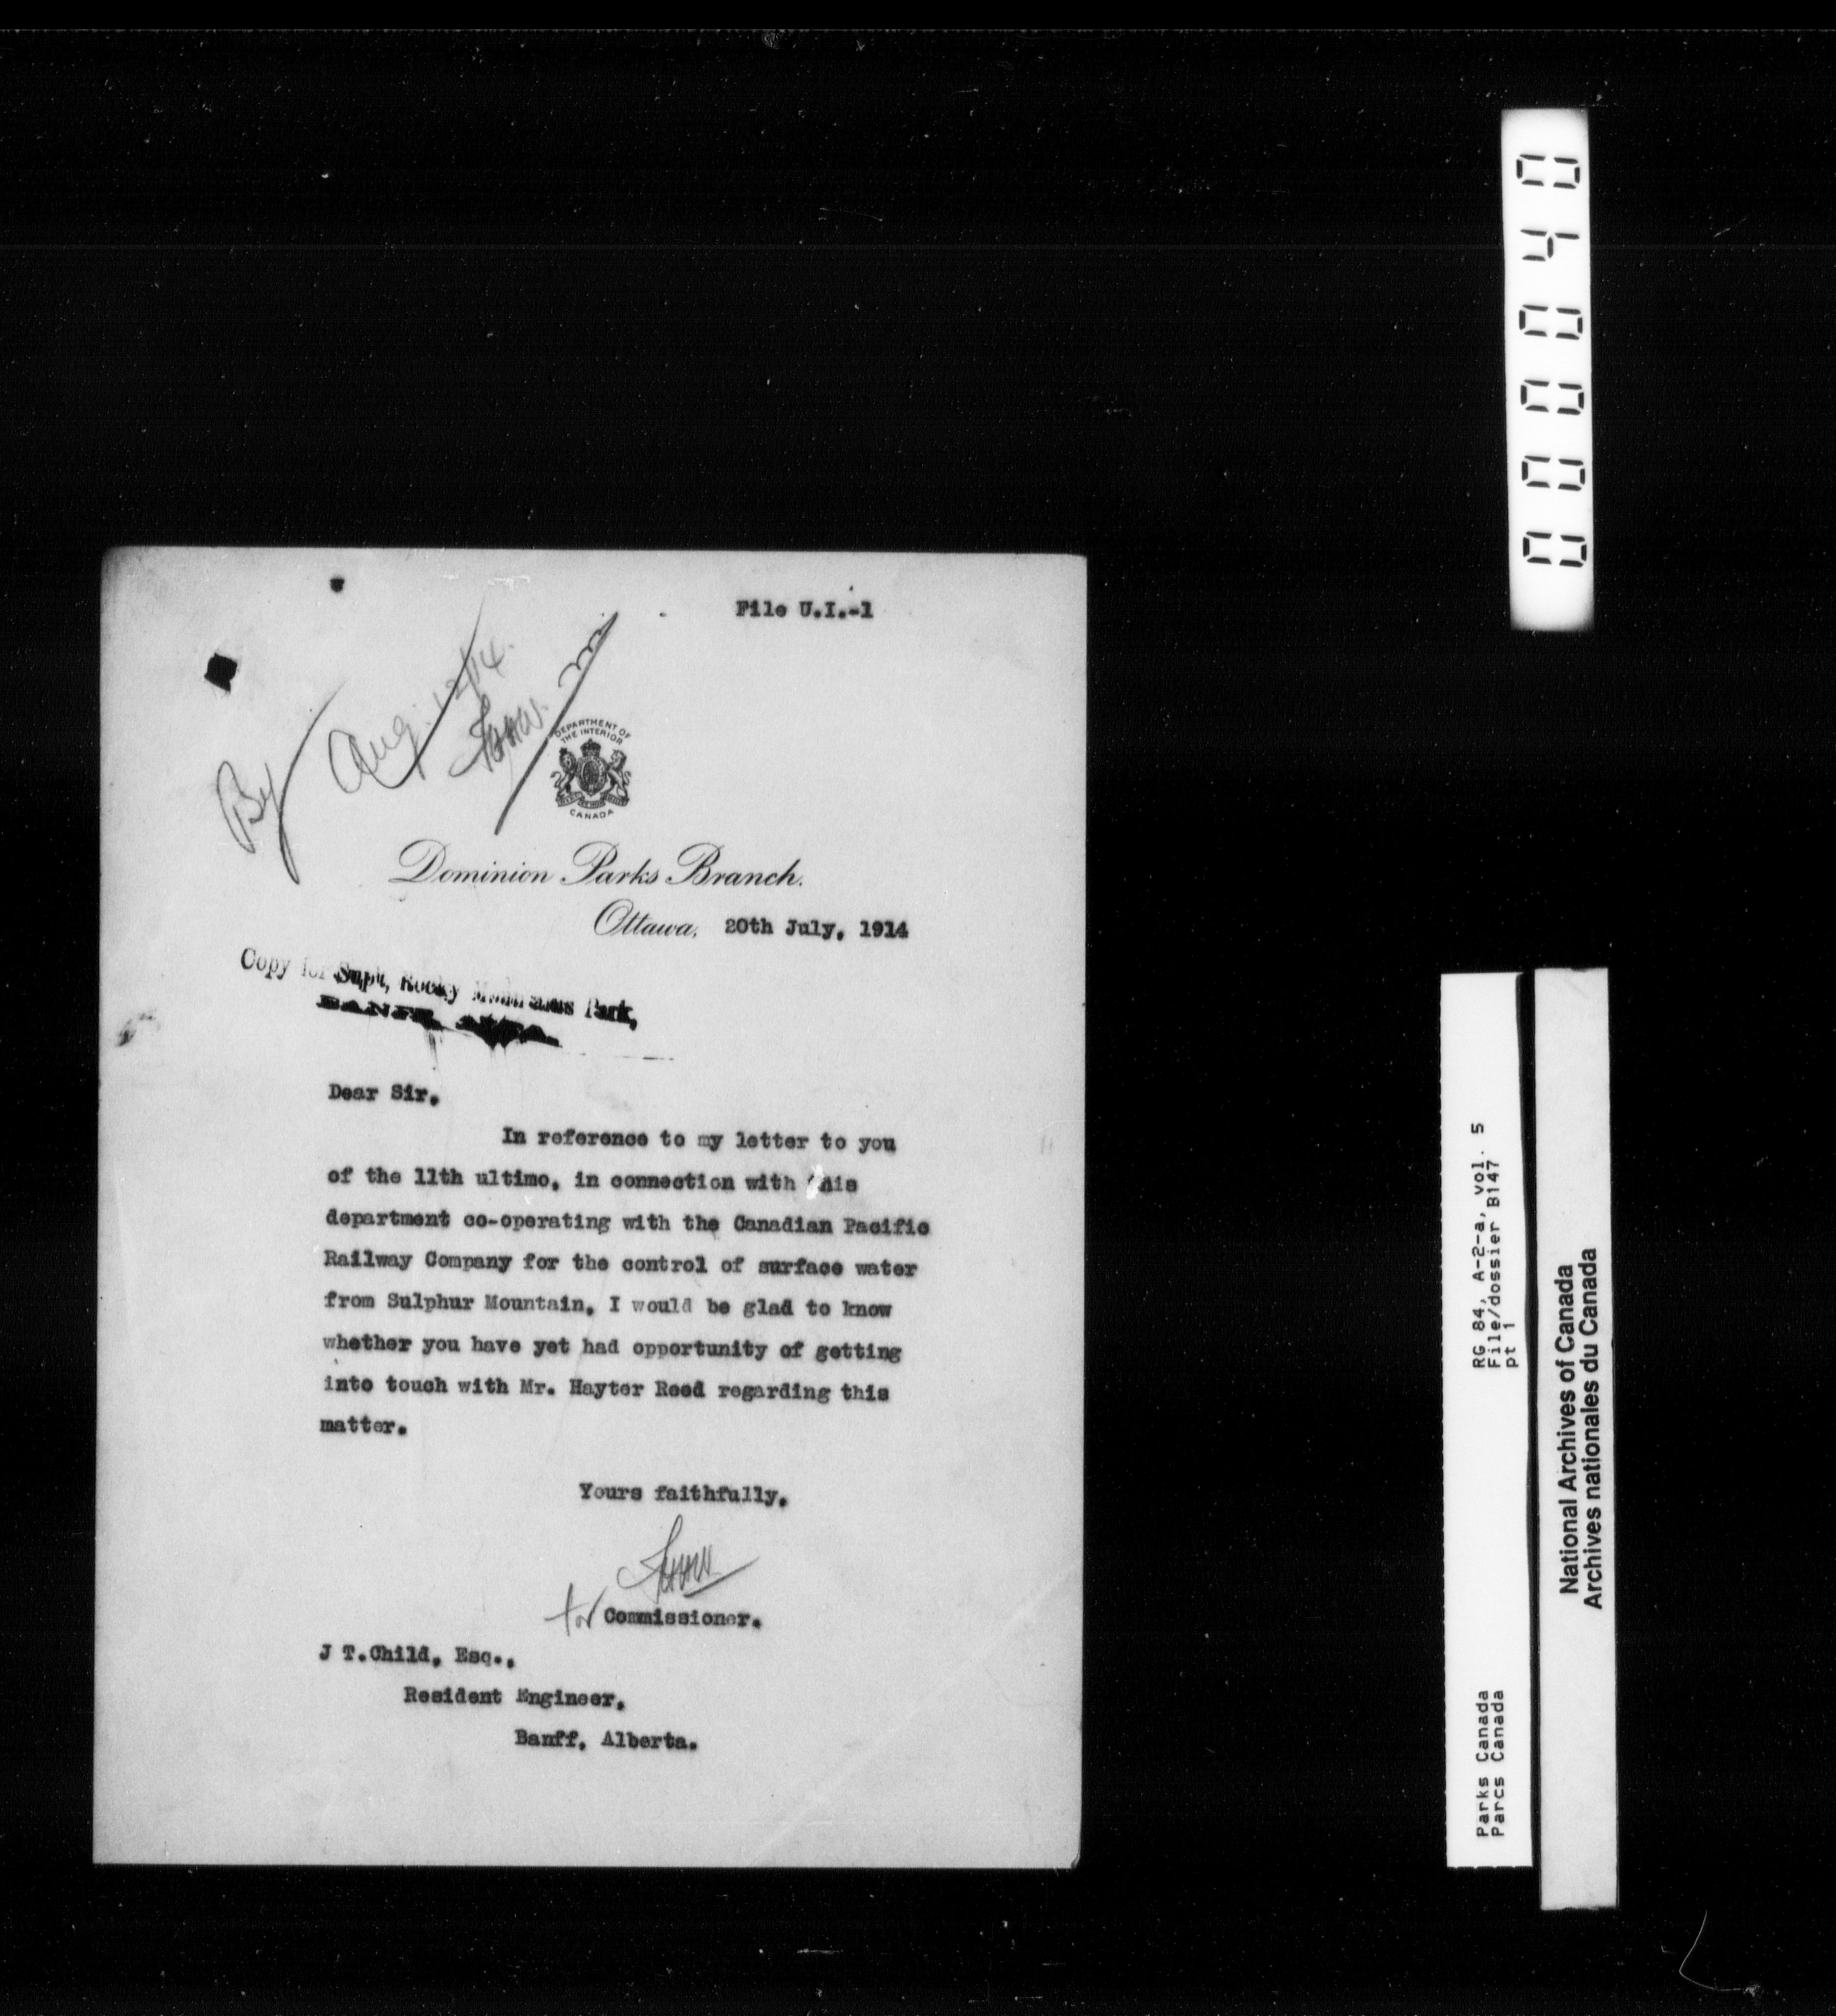 File U.I.-1
By Aug. 12/14.
DEPARTMENT OF
THE INTERIOR
CANADA
Dominion Parks Branch.
Ottawa, 20th July, 1914
Copy for Supt, Rocky Mountains Park,
BANFF, ALTA.
Dear Sir,
In reference to my letter to you
of the 11th ultimo, in connection with this
department co-operating with the Canadian Pacific
Railway Company for the control of surface water
from Sulphur Mountain, I would be glad to know
whether you have yet had opportunity of getting
into touch with Mr. Hayter Reed regarding this
matter.
Yours faithfully,
for Commissioner.
J T.Child, Esq.,
Resident Engineer,
Banff, Alberta.
000040
Parks Canada RG 84, A-2-a, vol. 5
Parcs Canada File/dossier B147
pt 1
National Archives of Canada
Archives nationales du Canada